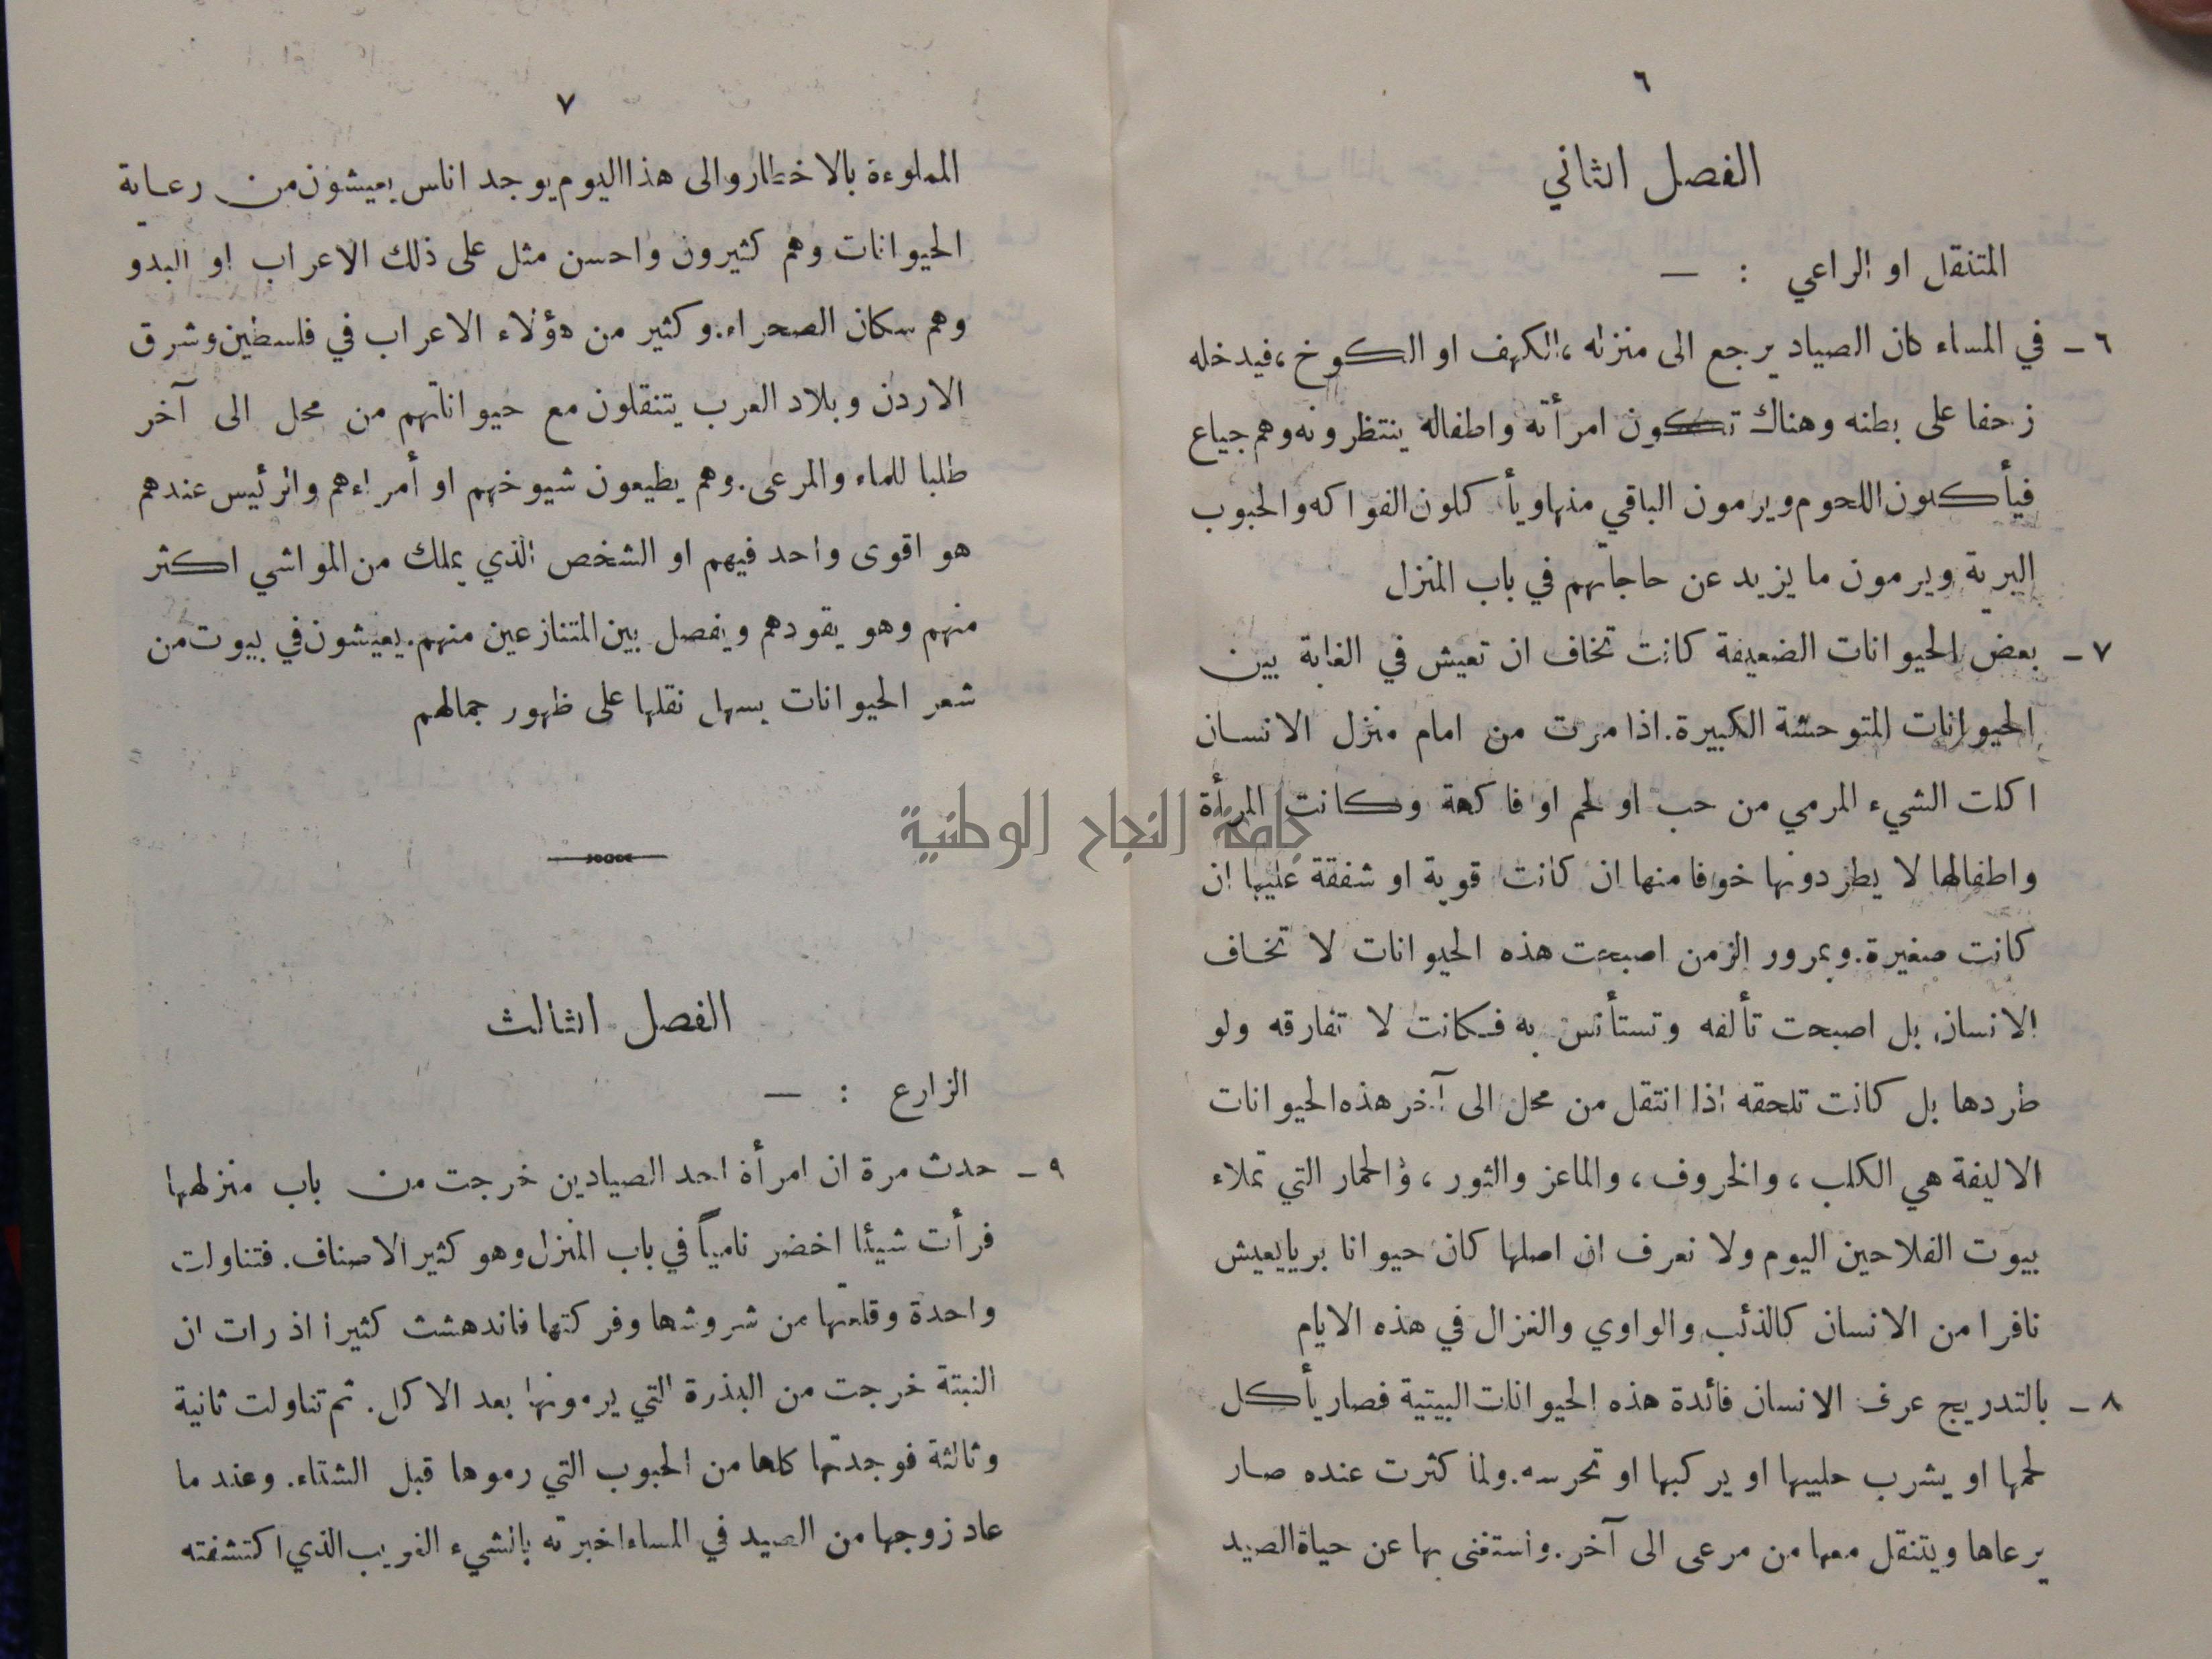 ٦
الفصل الثاني
المتنقل او الراعي : —
٦ - في المساء كان الصياد يرجع الى منزله ، الكهف او الكوخ ، فيدخله
زحفا على بطنه وهناك تكون امرأته واطفاله ينتظرونه وهم جياع
فيأكلون اللحوم ويرمون الباقي منها ويأكلون الفواكه والحبوب
البرية ويرمون ما يزيد عن حاجاتهم في باب المنزل
٧ - بعض الحيوانات الضعيفة كانت تخاف ان تعيش في الغابة بين
الحيوانات المتوحشة الكبيرة . اذا مرت من امام منزل الانسان
اكلت الشيء المرمي من حب او لحم او فاكهة وكانت المرأة
واطفالها لا يطردونها خوفا منها ان كانت قوية او شفقة عليها ان
كانت صغيرة . وبمرور الزمن اصبحت هذه الحيوانات لا تخاف
الانسان بل اصبحت تألفه وتستأنس به فكانت لا تفارقه ولو
طردها بل كانت تلحقه اذا انتقل من محل الى آخر هذه الحيوانات
الاليفة هي الكلب ، والخروف ، والماعز والثور ، والحمار التي تملاء
بيوت الفلاحين اليوم ولا نعرف ان اصلها كان حيوانا بريا يعيش
نافرا من الانسان كالذئب والواوي والغزال في هذه الايام
٨ - بالتدريج عرف الانسان فائدة هذه الحيوانات البيتية فصار يأكل
لحمها او يشرب حليبها او يركبها او تحرسه . ولما كثرت عنده صار
يرعاها ويتنقل معها من مرعى الى آخر . واستغنى بها عن حياة الصيد
٧
المملوءة بالاخطار والى هذا اليوم يوجد اناس يعيشون من رعاية
الحيوانات وهم كثيرون واحسن مثل على ذلك الاعراب او البدو
وهم سكان الصحراء . وكثير من هؤلاء الاعراب في فلسطين وشرق
الاردن وبلاد العرب يتنقلون مع حيواناتهم من محل الى آخر
طلبا للماء والمرعى . وهم يطيعون شيوخهم او أمراءهم والرئيس عندهم
هو اقوى واحد فيهم او الشخص الذي يملك من المواشي اكثر
منهم وهو يقودهم ويفصل بين المتنازعين منهم . يعيشون في بيوت من
شعر الحيوانات يسهل نقلها على ظهور جمالهم
جامعة النجاح الوطنية
الفصل الثالث
الزارع : —
٩ - حدث مرة ان امرأة احد الصيادين خرجت من باب منزلها
فرأت شيئا اخضر نامياً في باب المنزل وهو كثير الاصناف . فتناولت
واحدة وقلعتها من شروشها وفركتها فاندهشت كثيرا اذ رات ان
النبتة خرجت من البذرة التي يرمونها بعد الاكل . ثم تناولت ثانية
وثالثة فوجدتها كلها من الحبوب التي رموها قبل الشتاء . وعند ما
عاد زوجها من الصيد في المساء اخبرته بالشيء الغريب الذي اكتشفته